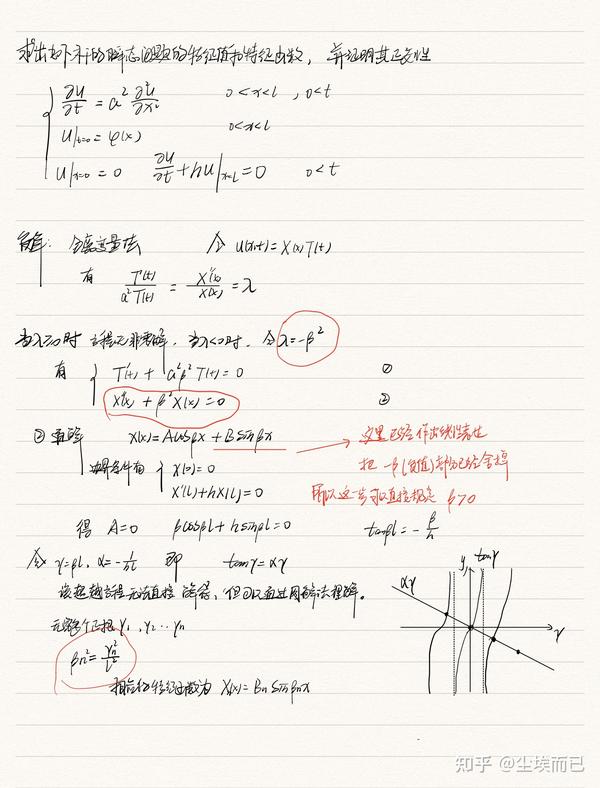 求出如下的瞬态问题的特征值和特征函数，并证明其正交性
∂u/∂t = a² ∂²u/∂x² 0<x<l , 0<t
u|t=0 = φ(x) 0<x<l
u|x=0 = 0 ∂u/∂t + hu|x=l = 0 0<t
解： 分离变量法 令 u(x,t) = X(x)T(t)
有 T'(t)/a²T(t) = X''(x)/X(x) = λ
当λ≥0时 方程无非零解，当λ<0时，令 λ = -β²
有 T'(t) + a²β²T(t) = 0 ①
X''(x) + β²X(x) = 0 ②
② X(x) = Acosβx + Bsinβx 这里已经
边界条件有 X(0) = 0 把 -β(负值)部分已经舍掉
X'(l) + hX(l) = 0 所以这一步可以直接规定 β>0
得 A=0 βcosβl + hsinβl = 0 tanβl = -β/h
令 γ=βl, α=-1/hl 即 tanγ = αγ
该超越方程无法直接解得，但可以通过图解法理解。
无穷个正根 γ1 , γ2 ... γn
βn² = γn²/l²
相应的特征函数为 X(x) = Bn sinβnx
y tanγ
αγ
γ
知乎 @尘埃而已